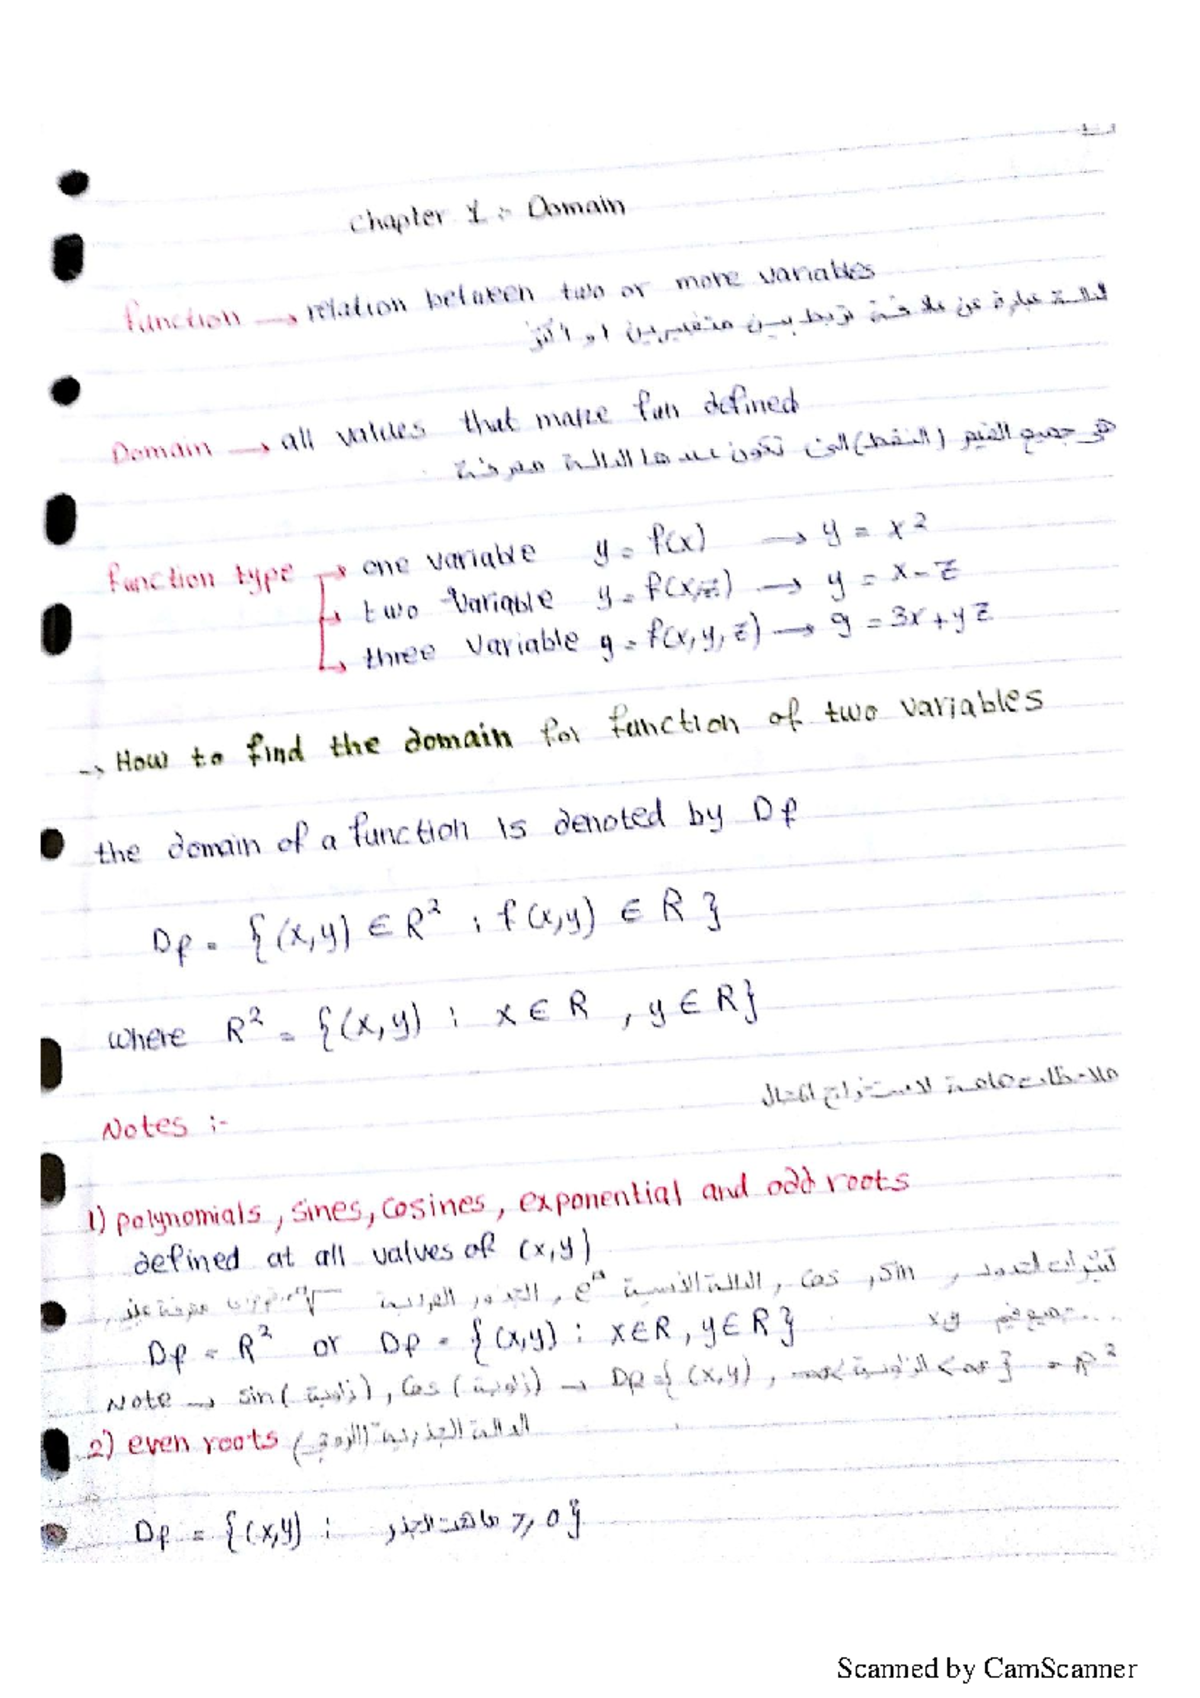 Chapter 1 :- Domain
function → relation between two or more variables
الدالة عبارة عن علاقة تربط بين متغيرين او اكثر
Domain → all values that make fun defined
هي جميع القيم (النقط) التي تكون عندها الدالة معرفة
function type → one variable y = f(x) → y = x²
→ two variable y = f(x,z) → y = x - z
→ three variable y = f(x, y, z) → g = 3x + yz
→ How to find the domain for function of two variables
the domain of a function is denoted by Df
Df = {(x,y) ∈ R² ; f(x,y) ∈ R }
where R² = {(x,y) : x ∈ R , y ∈ R}
ملاحظات خاصة لاستخراج المجال
Notes :-
1) polynomials, sines, cosines, exponential and odd roots
defined at all values of (x,y)
كثيرات الحدود , sin , cos , الدالة الأسية e , الجذور الفردية
جميع قيم x,y
Df = R² or Df = {(x,y) : x∈R , y∈R}
Note → sin(زاوية) , cos(زاوية) → Df = {(x,y) , -∞ < الزاوية < ∞} = R²
2) even roots الدالة الجذرية (الزوجي)
Df = {(x,y) : ما تحت الجذر ≥ 0}
Scanned by CamScanner